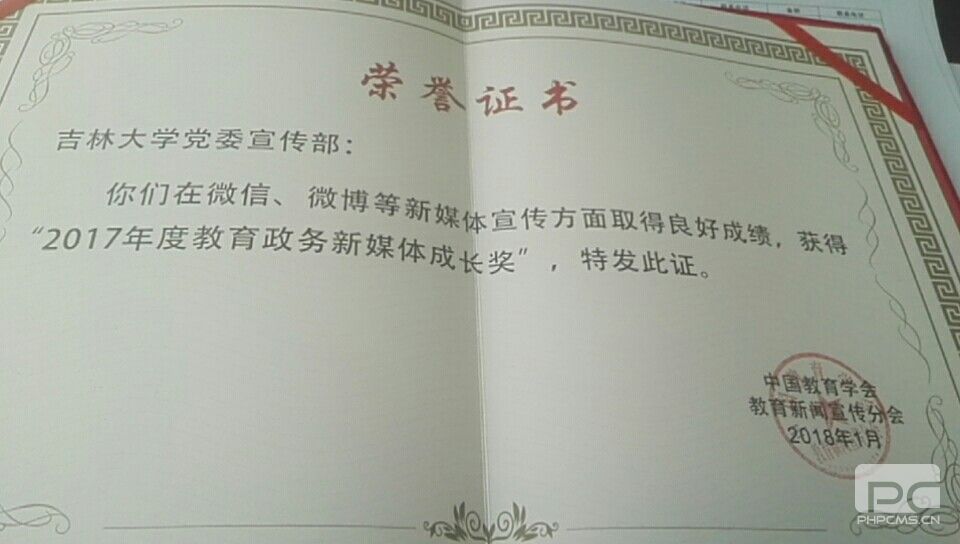 荣誉证书
吉林大学党委宣传部：
你们在微信、微博等新媒体宣传方面取得良好成绩，获得
“2017年度教育政务新媒体成长奖”，特发此证。
中国教育学会
教育新闻宣传分会
2018年1月
PC
PHPCMS.CN